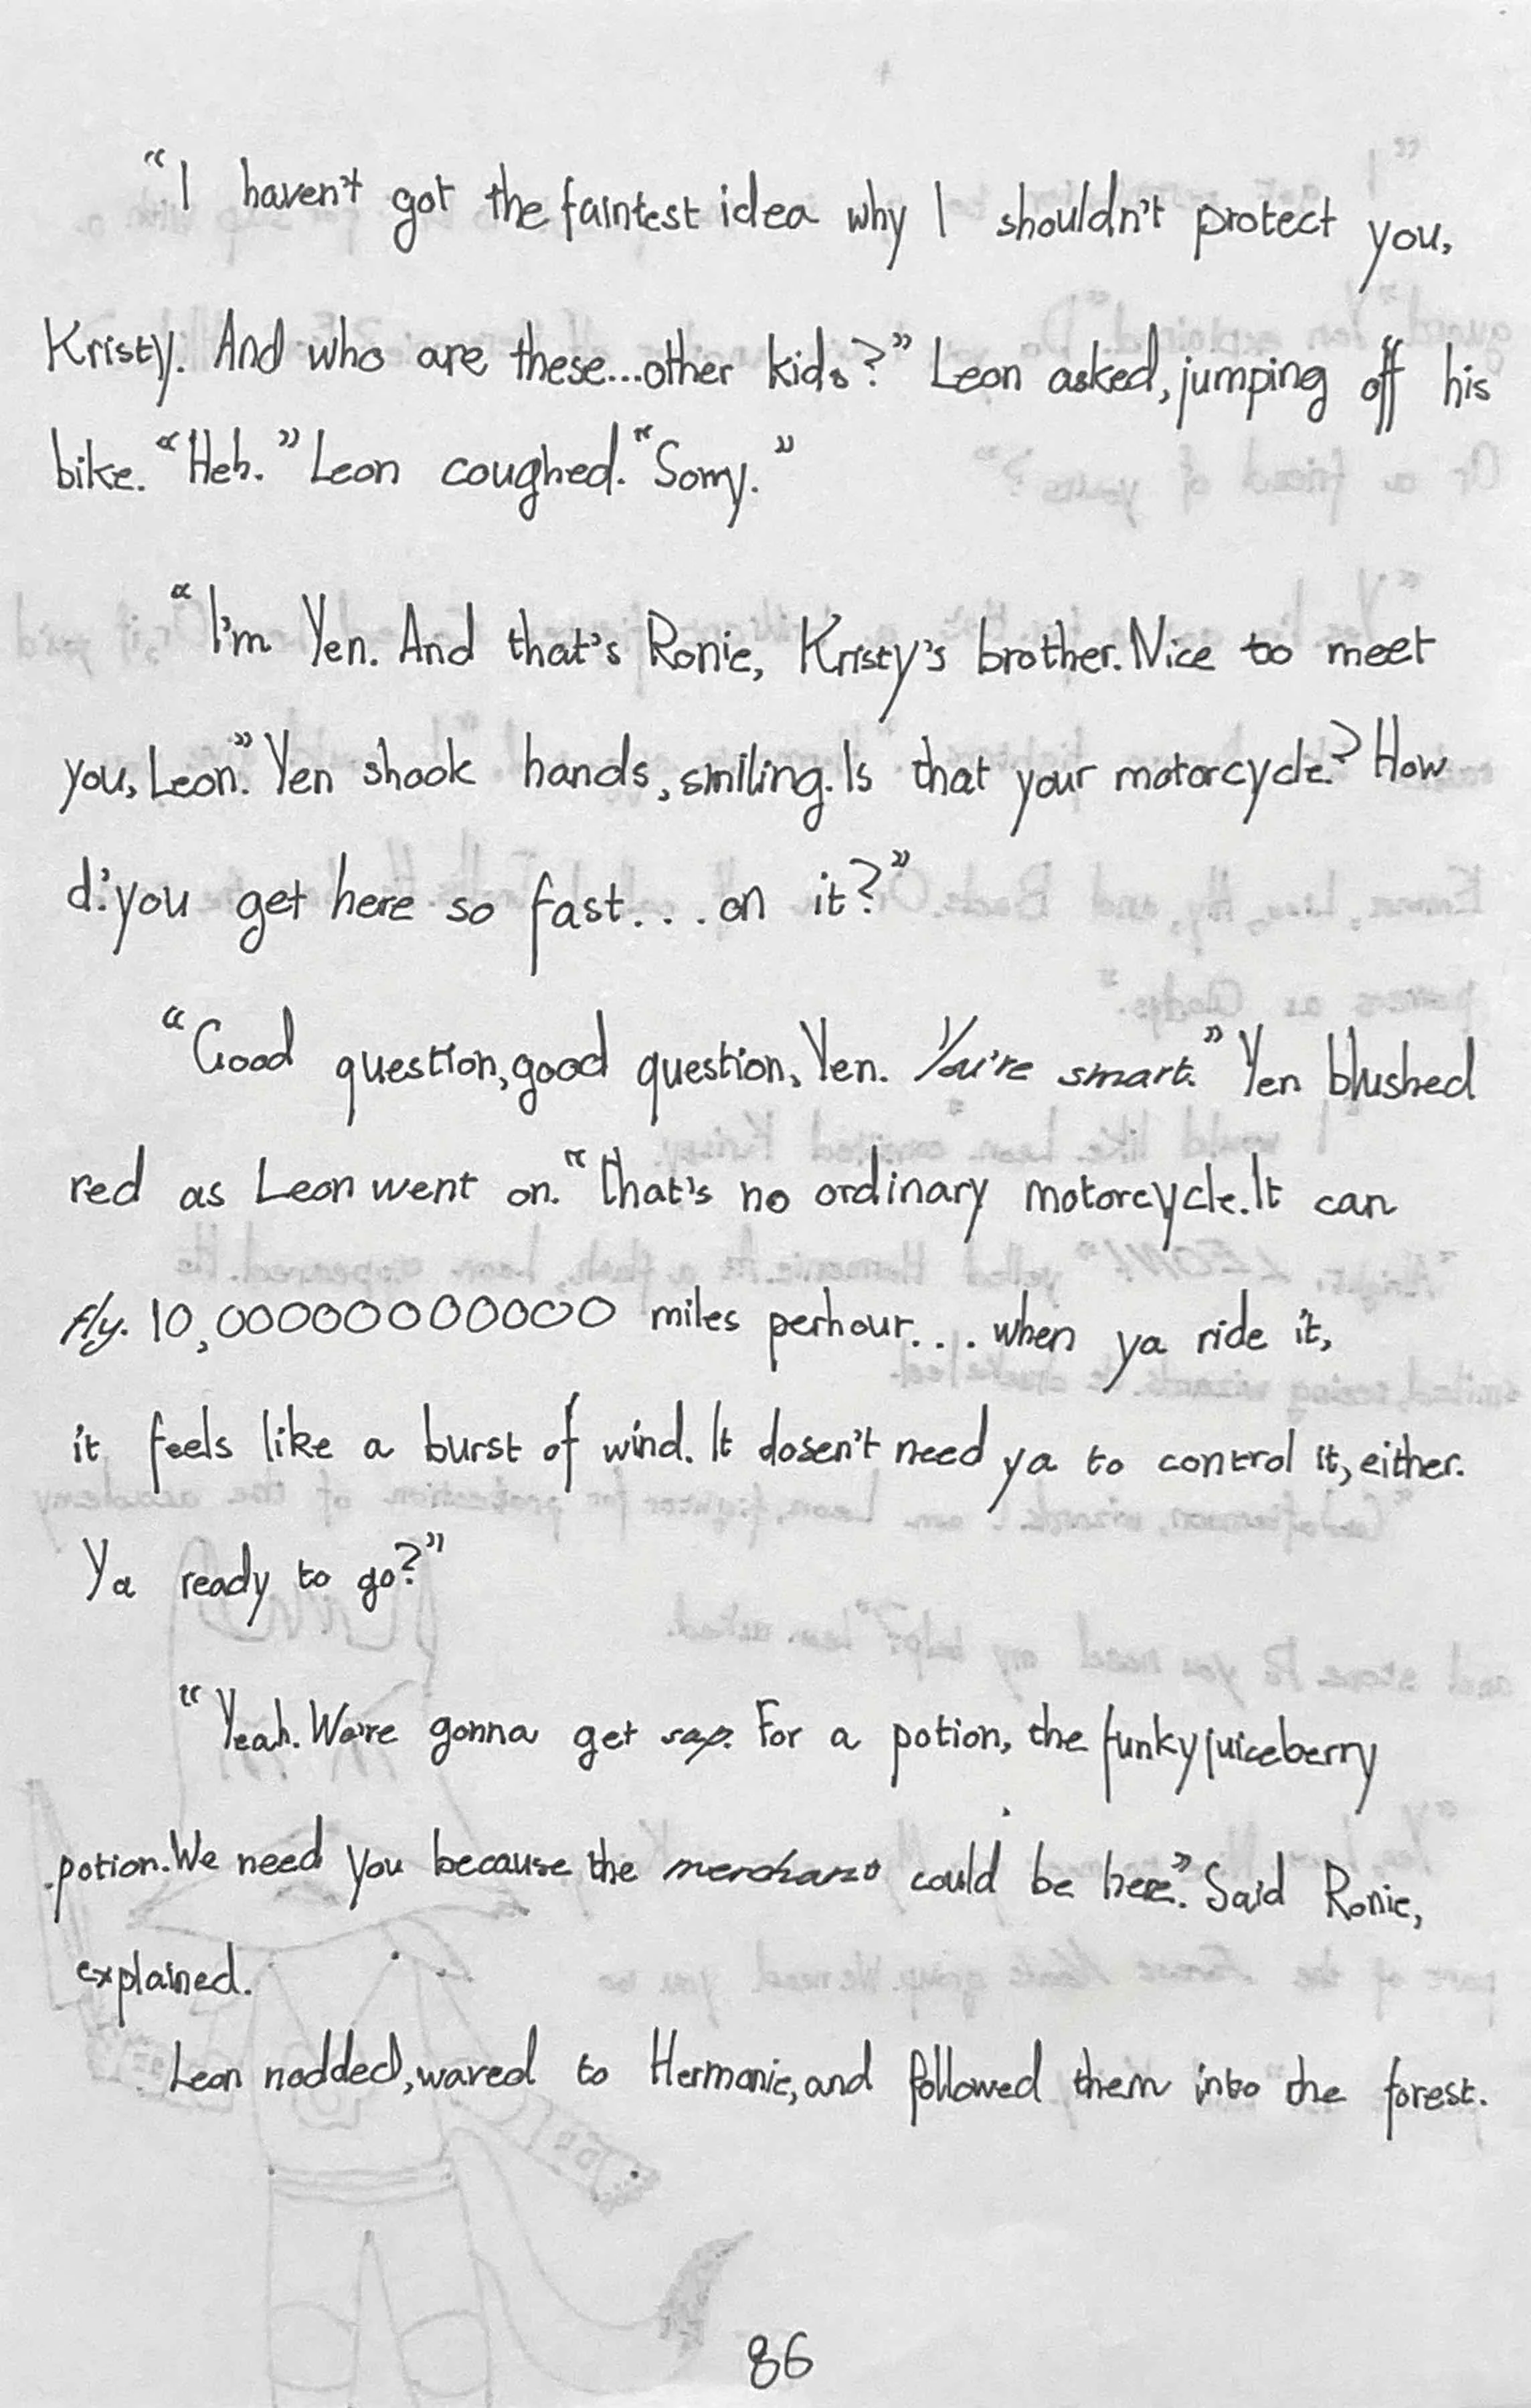 “I haven't got the faintest idea why I shouldn't protect you,
Kristy. And who are these...other kids?” Leon asked, jumping off his
bike. “Heh.” Leon coughed. “Sorry.”
“I'm Yen. And that's Ronie, Kristy's brother. Nice to meet
you, Leon.” Yen shook hands, smiling. Is that your motorcycle? How
d'you get here so fast... on it?”
“Good question, good question, Yen. You're smart.” Yen blushed
red as Leon went on. “That's no ordinary motorcycle. It can
fly. 10,000000000000 miles perhour... when ya ride it,
it feels like a burst of wind. It dosen't need ya to control it, either.
Ya ready to go?”
“Yeah. We're gonna get sap. For a potion, the funkyjuiceberry
potion. We need you because the could be here.” Said Ronie,
explained.
Leon nodded, waved to Hermonie, and followed them into the forest.
86